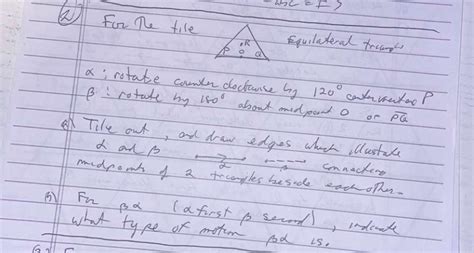 2) For the tile
Equilateral triangle
R
P O Q
α : rotate counter clockwise by 120° center vertex P
β : rotate by 180° about midpoint O or PQ
a) Tile out, and draw edges which illustrate
α and β → α --→ β connecting
midpoints of 2 triangles beside each other.
b) For βα (α first β second), indicate
what type of motion βα is.